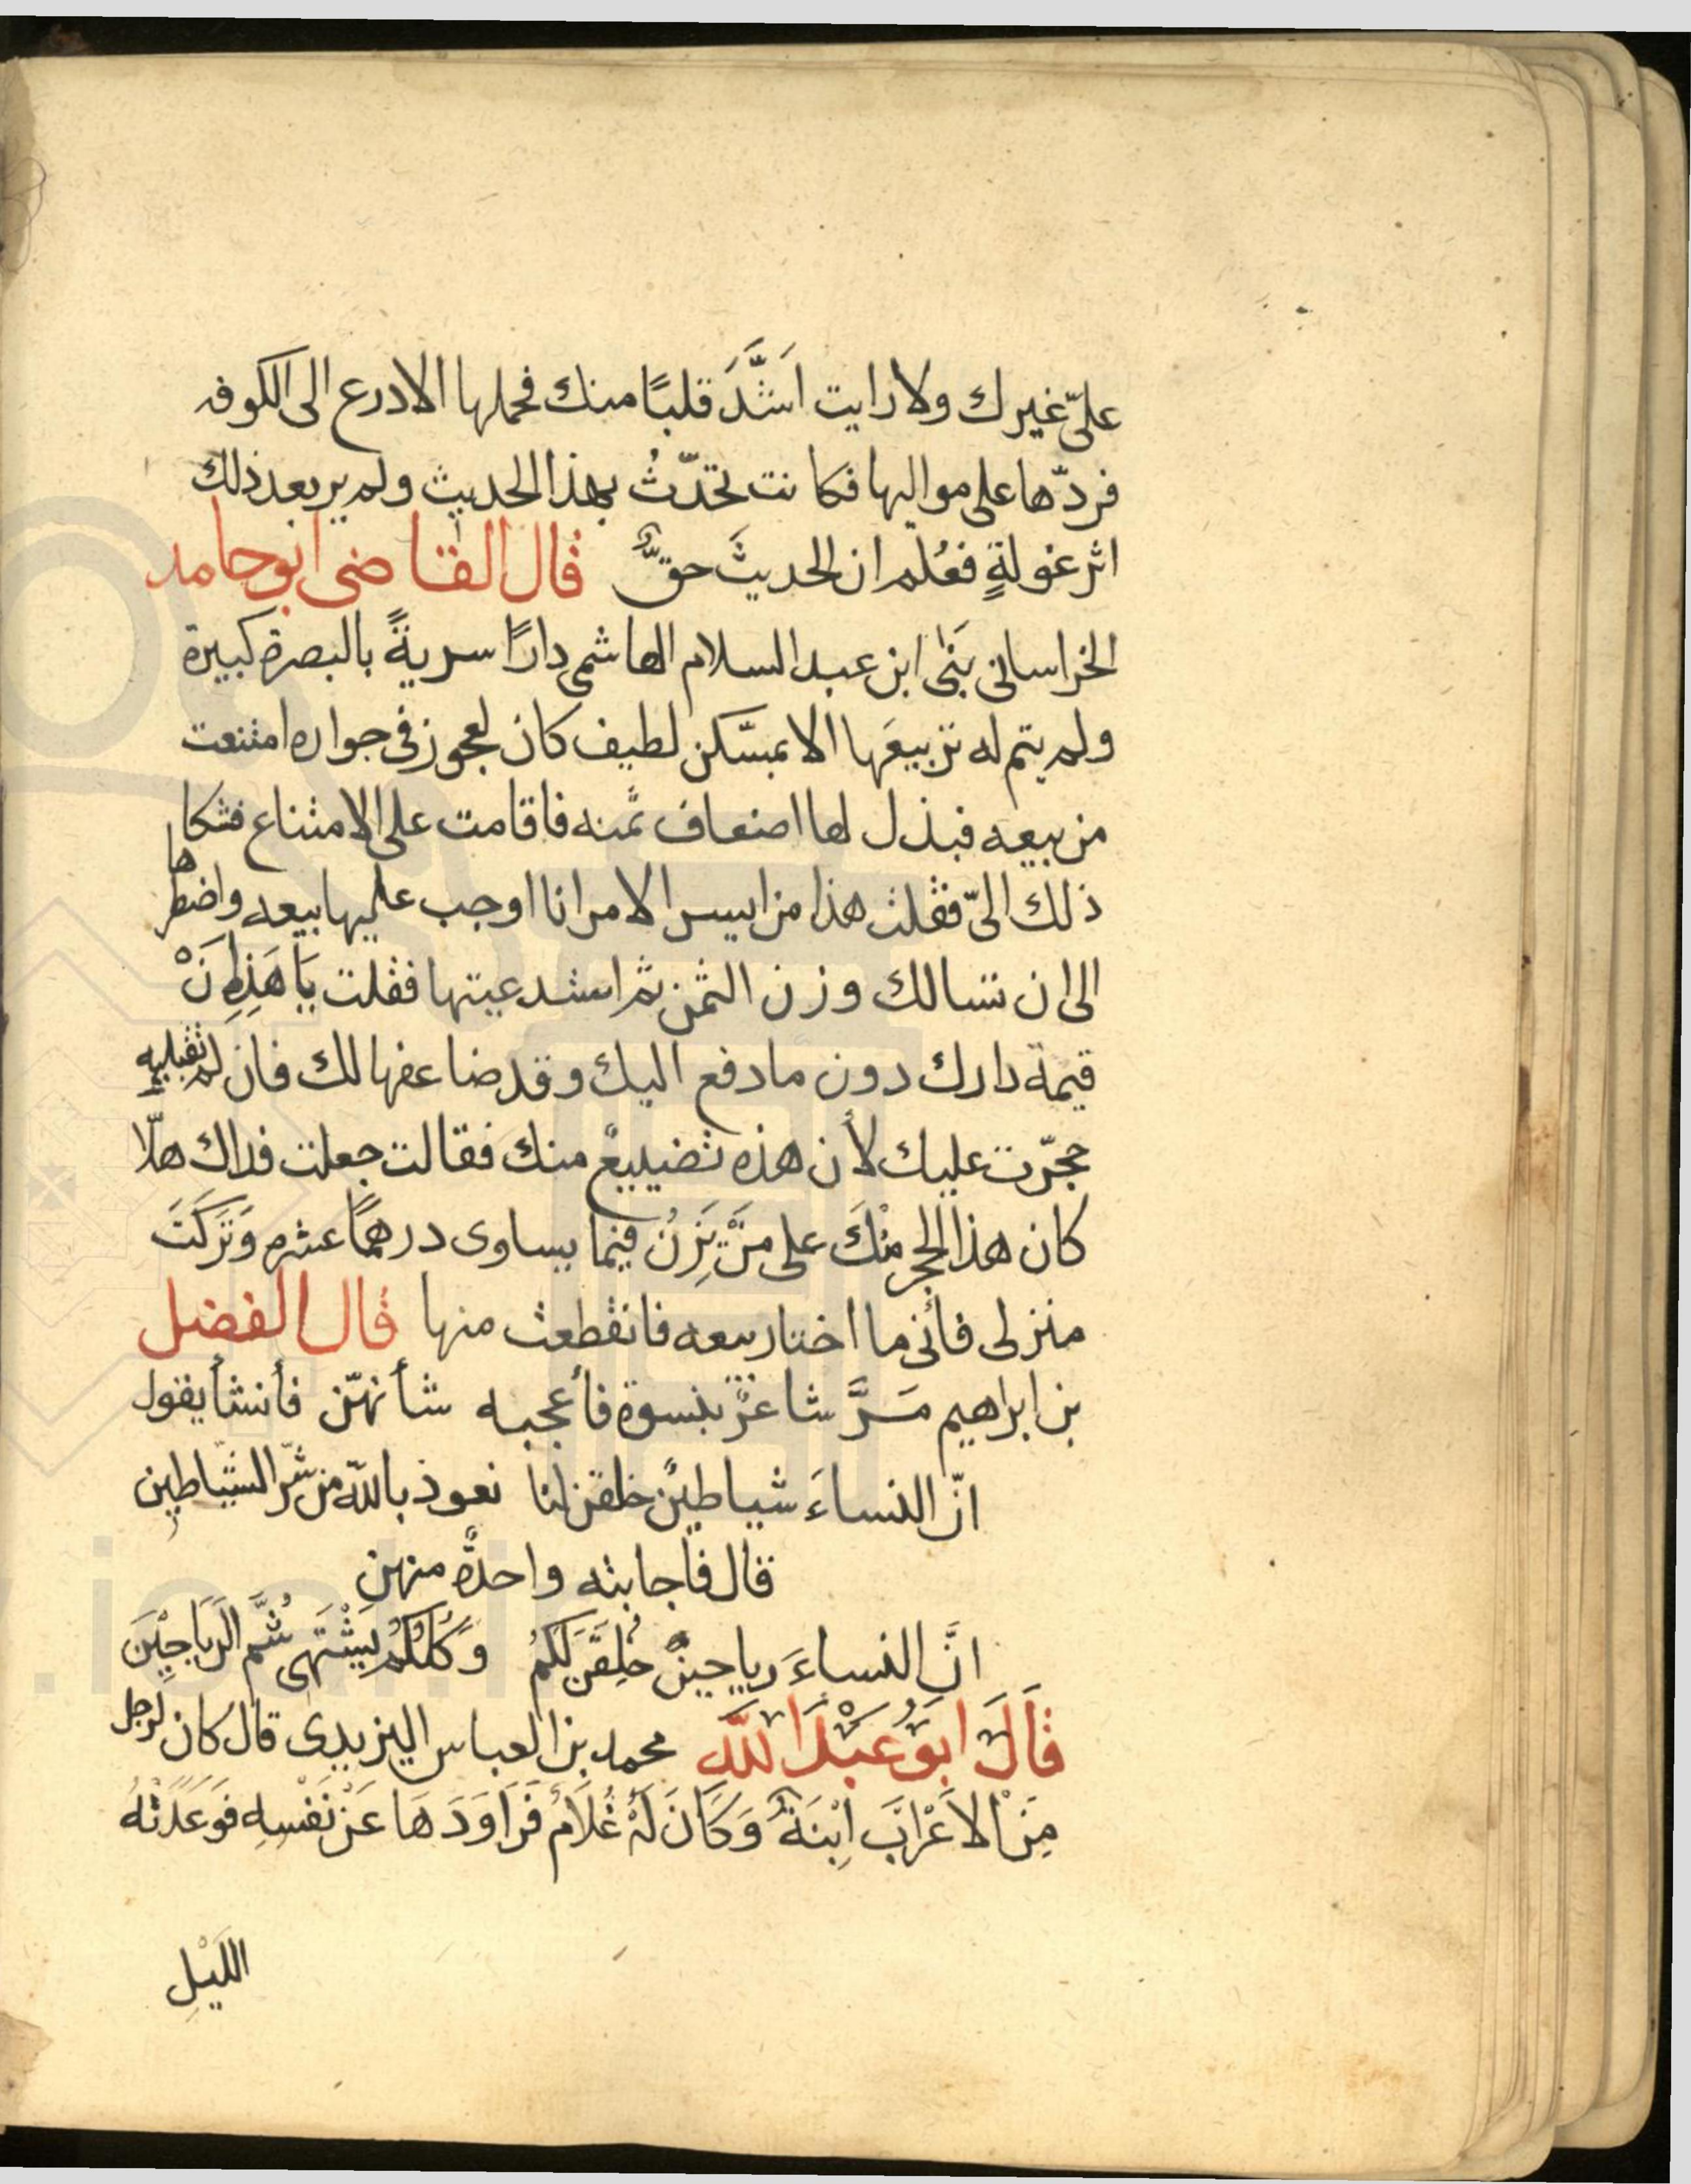 علىّ غيرك ولا رايت اشَدَّ قلبًا منك فحملها الادرع الى الكوفه
فردّها على مواليها فكانت تحدّثُ بهذا الحديث ولم ير بعد ذلك
اثر غولةٍ فعُلم ان الحديثَ حقٌّ قال القاضى ابو حامد
الخراسانى بَنٰى ابن عبد السلام الهاشمى دارًا سريةً بالبصرة كبيرة
ولم يتم له تربيعَها الا بمسكن لطيف كان لعجوز فى جواره امتنعت
من بيعه فبذل لها اضعاف ثمنه فاقامت على الامتناع فشكا
ذلك الىّ فقلت هذا من ايسر الامر انا اوجب عليها بيعه واضطرها
الى ان تسالك وزن الثمن ثم استدعيتها فقلت يَا هَذِهِ اِنَّ
قيمة دارك دون ما دفع اليك وقد ضاعفها لك فان لم تقبليه
حجّرت عليك لأن هذه تضييعٌ منك فقالت جعلت فداك هلّا
كان هذا الحجر مِنْكَ على مَنْ يَزِنُ فيما يساوى درهمًا عشره وَتَرَكتَ
منزلى فأنى ما اختار بيعه فانقطعت منها قال الفضل
بن ابراهيم مَرَّ شاعرٌ بنسوة فأعجبه شأنهنّ فأنشأ يقول
انّ النساءَ شياطينٌ خلقن لنا نعوذ بالله من شرّ الشيّاطين
قال فاجابته واحدةٌ منهن
انَّ النساءَ رياحينٌ خُلِقَنَ لَكُمُ وَكُلُّكُمْ يَشْتَهى شَمَّ الرَيَاحِيْنَ
قَالَ ابَوُ عَبْدَ اللهَ محمد بن العباس اليزيدى قال كان لرجل
مِنَ الاَعْرَابَ اِبْنَةٌ وَكَانَ لَهُ غُلَامٌ فَرَاوَدَهَا عَنْ نَفْسِهِ فوَعَدَتْهُ
اللَيْلِ